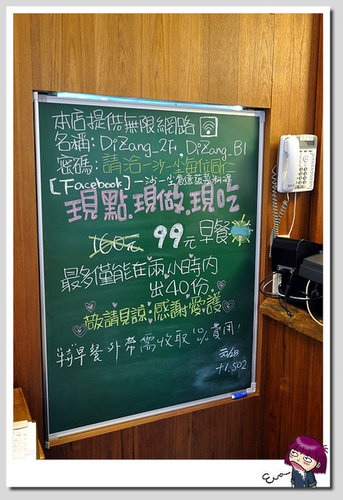 本店提供無限網路
名稱: DiZang_2F, DiZang_B1
密碼: 請洽一沙一塵每位同仁
[Facebook] 一沙一塵創意蔬菜料理
現點.現做.現吃
160元 99元 早餐
最多僅能在兩小時內
出40份.
敬請見諒:感謝愛護
特早餐外帶需收取10%費用!
+1,502
Eva